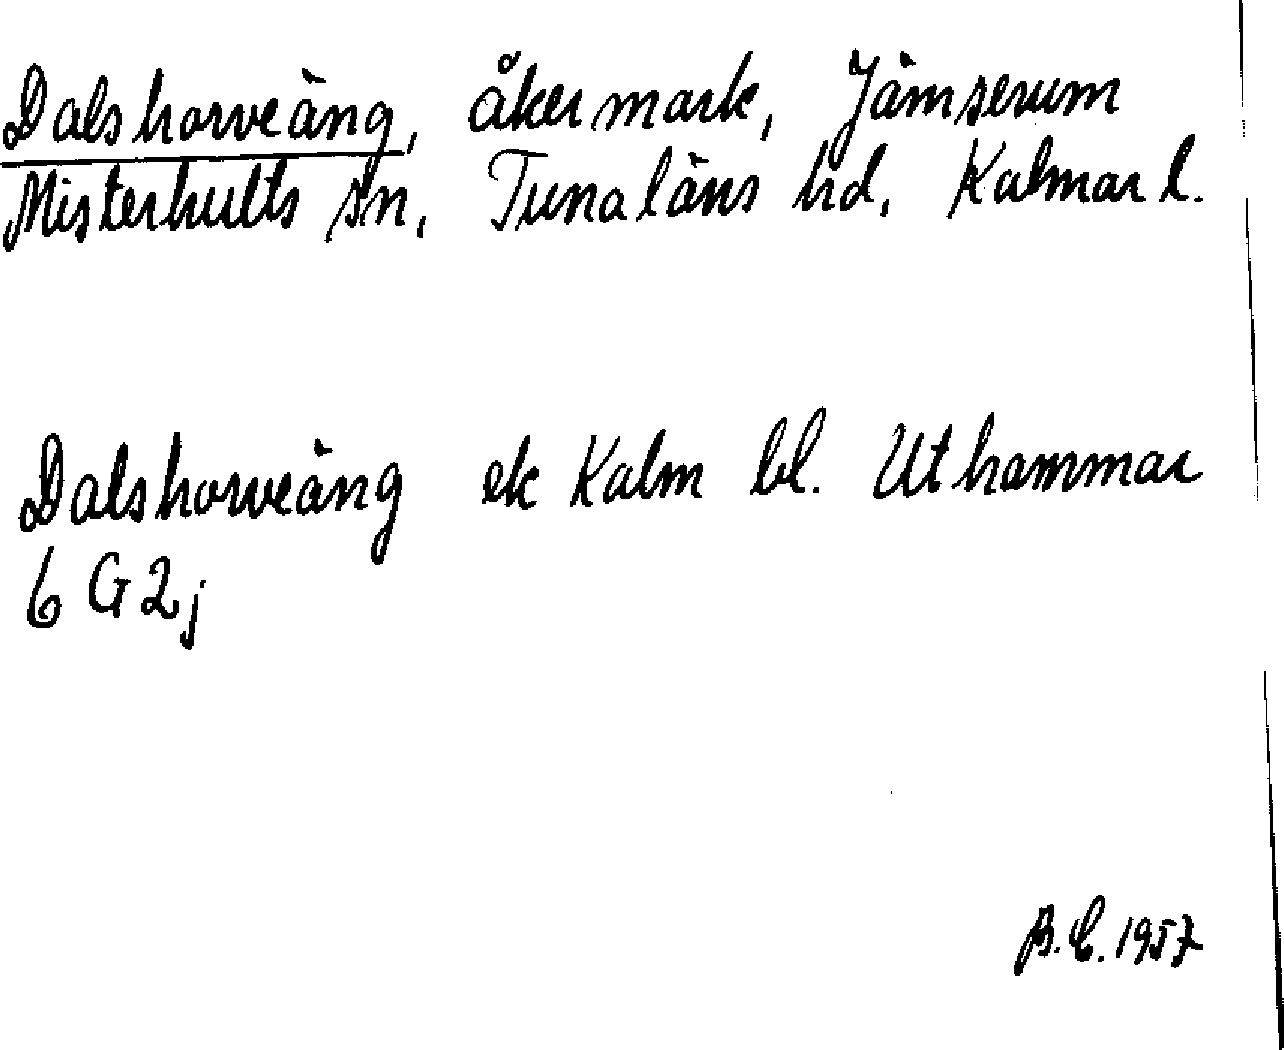 Dalshorveäng, åkermark, Jämserum
Misterhults sn, Tunaläns hd, Kalmar l.
Dalshorveäng ek Kalm bl. Uthammar
6 G 2 j
B.C. 1957